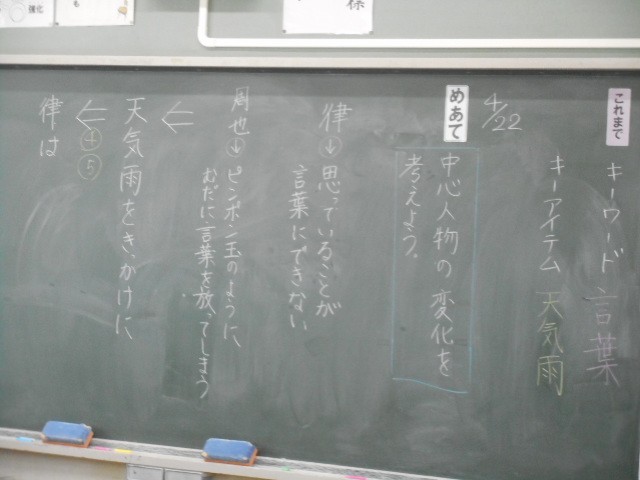 これまで
キーワード 言葉
キーアイテム 天気雨
4/22
めあて
中心人物の変化を
考えよう。
律→思っていることが
言葉にできない
周也→ピンポン玉のように、
むだに言葉を放ってしまう
←
天気雨をきっかけに
← ④ ⑤
律は
強化
も